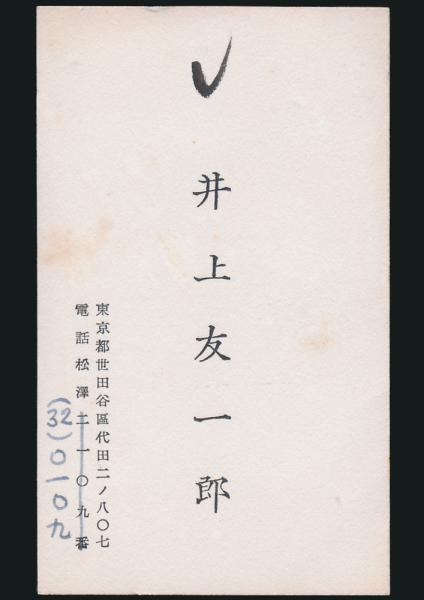 井上友一郎
東京都世田谷區代田二ノ八〇七
電話松澤二一〇九番
(32)〇一〇九